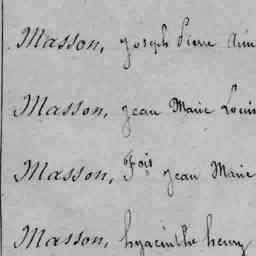 Masson, Joseph Pierre
Masson, Jean Marie Louis
Masson, Fois Jean Marie
Masson, hyacinthe henry